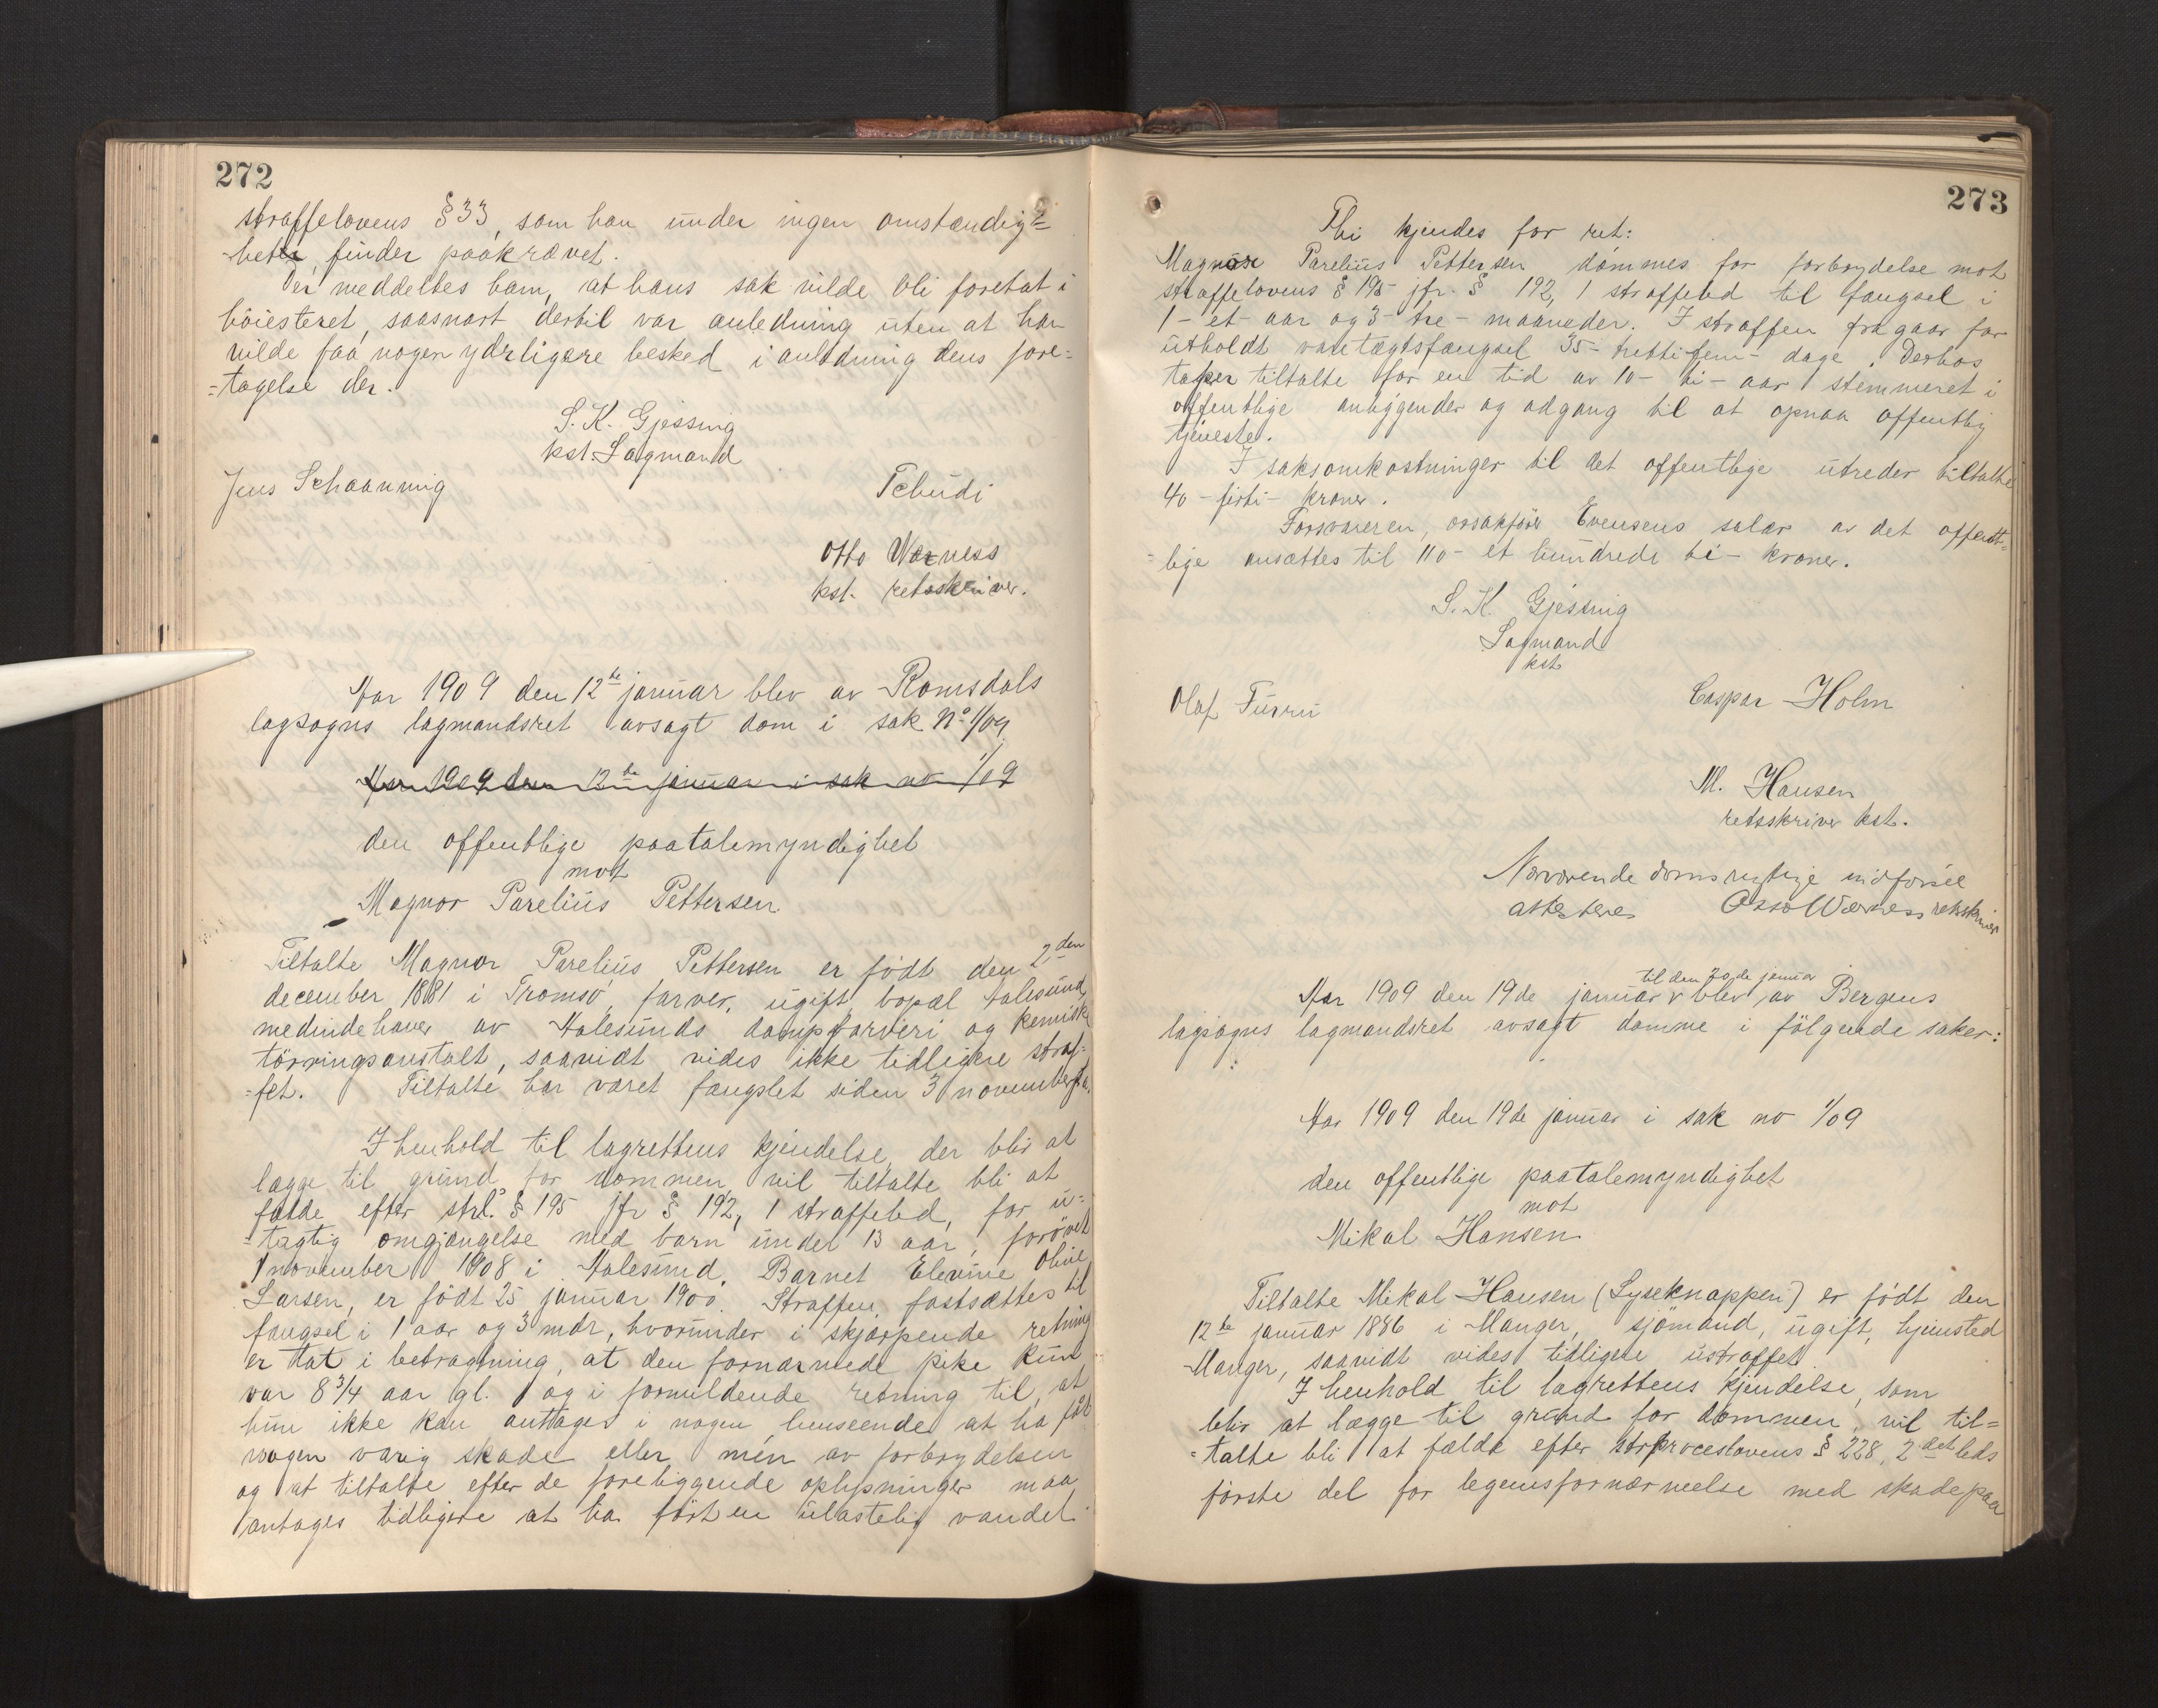 272
straffelovens § 33, som han under ingen omstændig=
-heter, finder paakrævet.
Det meddeltes ham, at hans sak vilde bli foretat i
höiesteret, saasnart dertil var anledning uten at han
vilde faa nogen yderligere besked i anledning dens fore=
=tagelse der.
S. K. Gjessing
kst. Lagmand
Jens Schaanning
Tchudi
Otto Værness
kst. retsskriver.
Aar 1909 den 12te januar blev av Romsdals
lagsogns lagmandsret avsagt dom i sak No 1/09.
Aar 1909 den 12te januar i sak no 1/09
den offentlige paatalemyndighet
mot
Magnor Parelius Pettersen
Tiltalte Magnor Parelius Pettersen er födt den 2den
december 1881 i Tromsö, farver, ugift, bopæl Aalesund,
medindehaver av Aalesunds dampfarveri og kemiske
törringsanstalt, saavidt vides ikke tidligere straf=
=fet. Tiltalte har været fængslet siden 3 november f.a.
I henhold til lagrettens kjendelse, der blir at
lægge til grund for dommen, vil tiltalte bli at
fælde efter strl.s § 195 jfr § 192, 1 straffebud, for u=
=tugtig omgjængelse med barn under 13 aar, forövet
1 november 1908 i Aalesund. Barnet Elevine Olive
Larsen, er födt 25 januar 1900. Straffen fastsættes til
fængsel i 1 aar og 3 mdr, hvorunder i skjærpende retning
er tat i betragtning, at den fornærmede pike kun
var 8 3/4 aar gl. og i formildende retning til, at
hun ikke kan antages i nogen henseende at ha fåt
nogen varig skade eller mén av forbrydelsen
og at tiltalte efter de foreliggende oplysninger maa
antages tidligere at ha fört en ulastelig vandel.
273
Thi kjendes for ret:
Magnor Parelius Pettersen dömmes for forbrydelse mot
straffelovens § 195 jfr. § 192, 1 straffebud til fængsel i
1 - et - aar og 3 - tre - maaneder. I straffen fragaar for
utholdt varetægtsfængsel 35 - trettifem - dage. Derhos
taper tiltalte for en tid av 10 - ti - aar stemmeret i
offentlige anliggender og adgang til at opnaa offentlig
tjeneste.
I saksomkostninger til det offentlige utreder tiltalte
40 - firti - kroner.
Forsvareren, orsakförer Evensens salær av det offent=
=lige ansættes til 110 - et hundrede ti - kroner.
S. K. Gjessing
Lagmand
kst
Olaf Furru
Caspar Holm
M. Hansen
retsskriver kst.
Nærværende doms rigtige indförsel
attesteres Otto Værness retskriver
til den 20de januar
Aar 1909 den 19de januar v blev av Bergens
lagsogns lagmandsret avsagt domme i fölgende saker:
Aar 1909 den 19de januar i sak no 1/09
den offentlige paatalemyndighet
mot
Mikal Hansen
Tiltalte Mikal Hansen (Lyseknappen) er födt den
12te januar 1886 i Manger, sjömand, ugift, hjemsted
Manger, saavidt vides tidligere ustraffet.
I henhold til lagrettens kjendelse, som
blir at lægge til grund for dommen, vil til=
=talte bli at fælde efter strproceslovens § 228, 2det leds
förste del for legemsfornærmelse med skade paa